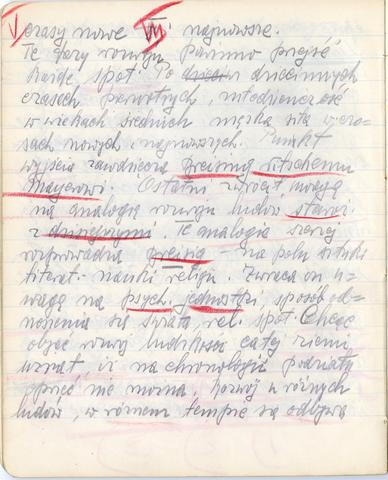 V czasy nowe VI najnowsze.
Te fazy rozwoju powinno przejść
każde społ. Po dziecinnych
czasach pierwotnych, młodzieńczość
w wiekach średnich męska siła w cza-
sach nowych i najnowszych. Punkt
wyjścia zawdzięcza
Mayerowi. Ostatni zwrócił uwagę
na analogię rozwoju ludów staroż.
z dzisiejszymi. Tę analogię szerzej
rozprowadza na polu sztuki
literat. nauki religii. Zwraca on u-
wagę na psych. jednostki, sposób od-
noszenia się świata, rel. społ. Chcąc
objąć rozwój ludzkości całej ziemi
uznał, iż na chronologii podziału
oprzeć nie można, rozwój u różnych
ludów, w różnem tempie się odbywa